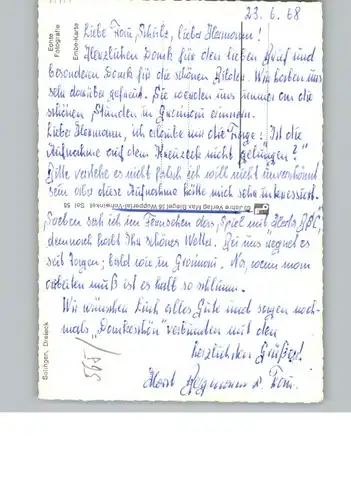 23.6.68
Liebe Frau Schütz, liebe Hermann!
Herzlichen Dank für den lieben Brief und
besonderen Dank für die schönen Bilder. Wir haben uns
sehr darüber gefreut. Sie werden uns immer an die
schönen Stunden in erinnern.
Liebe Hermann, ich erlaube mir die Frage: Ist die
Aufnahme auf dem Kreuzeck nicht gelungen?"
Bitte verstehe es nicht falsch ich will nicht unverschämt
sein aber diese Aufnahme hätte mich sehr interessiert.
Soeben seh ich im Fernsehen das Spiel mit
demnach habt Ihr schönes Wetter. Bei uns regnet es
seit Tagen; bald wie in Na, wenn man
arbeiten muß ist es halb so schlimm.
Wir wünschen Euch alles Gute und sagen noch-
mals "Dankeschön" verbunden mit den
herzlichsten Grüßen!
Horst u. Frau
565/
Echte Fotografie
Embe-Karte
60 Jahre Verlag Max Biegel 56 Wuppertal-Vohwinkel Sol. 55
Solingen, Dreieck